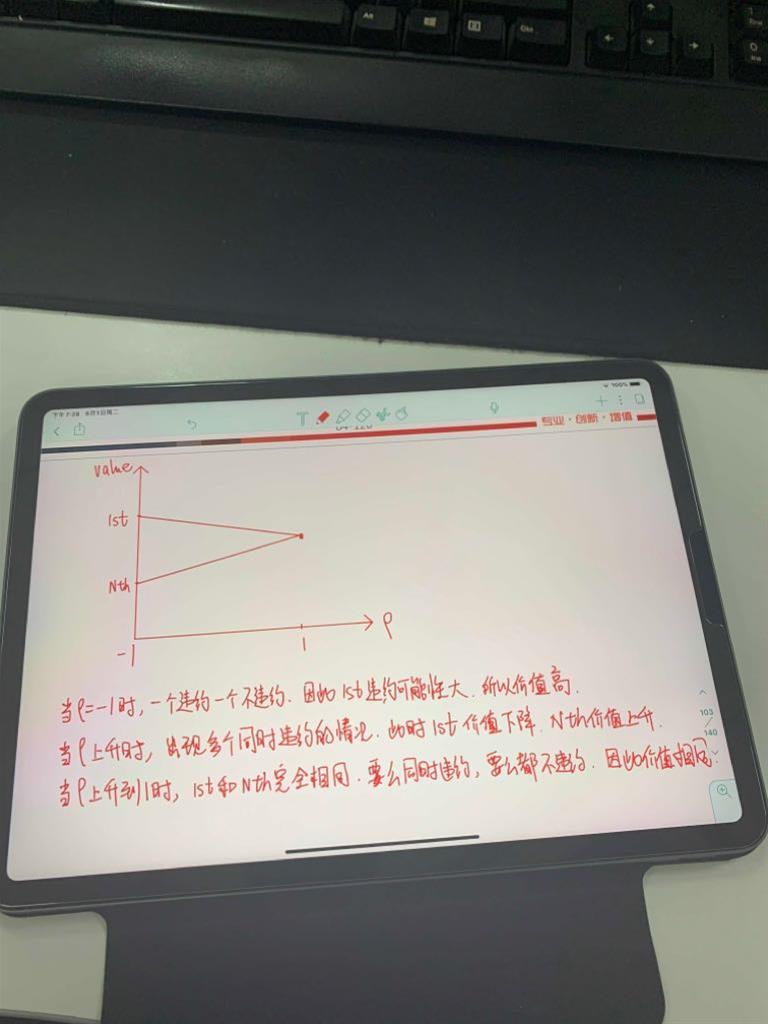 Alt
Ctrl
下午7:28 9月1日周二
100%
专业·创新·增值
value
1st
Nth
-1
1
ρ
当ρ=-1时，一个违约一个不违约．因此1st违约可能性大．所以价值高．
当ρ上升时，出现多个同时违约的情况．此时1st价值下降．Nth价值上升．
当ρ上升到1时，1st和Nth完全相同．要么同时违约，要么都不违约．因此价值相同．
103
140